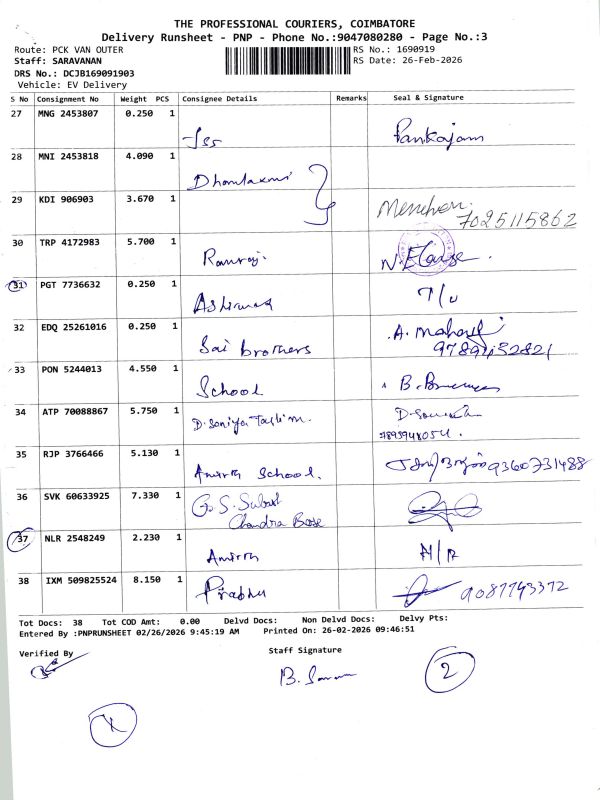 THE PROFESSIONAL COURIERS, COIMBATORE
Delivery Runsheet - PNP - Phone No.:9047080280 - Page No.:3
Route: PCK VAN OUTER RS No.: 1690919
Staff: SARAVANAN RS Date: 26-Feb-2026
DRS No.: DCJB169091903
Vehicle: EV Delivery
S No Consignment No Weight PCS Consignee Details Remarks Seal & Signature
27 MNG 2453807 0.250 1
Jss Pankajam
28 MNI 2453818 4.090 1
Dhanlaxmi
29 KDI 906903 3.670 1
7025115862
30 TRP 4172983 5.700 1
Ramraj
31 PGT 7736632 0.250 1
T/U
32 EDQ 25261016 0.250 1
Sai brothers
33 PON 5244013 4.550 1
School
34 ATP 70088867 5.750 1
D. Soniya Taslim.
35 RJP 3766466 5.130 1
Amirth School. 9360731488
36 SVK 60633925 7.330 1
G. S. Subash
Chandra Bose
37 NLR 2548249 2.230 1
Amirth N/R
38 IXM 509825524 8.150 1
Prabhu 9087743372
Tot Docs: 38 Tot COD Amt: 0.00 Delvd Docs: Non Delvd Docs: Delvy Pts:
Entered By :PNPRUNSHEET 02/26/2026 9:45:19 AM Printed On: 26-02-2026 09:46:51
Verified By Staff Signature
2